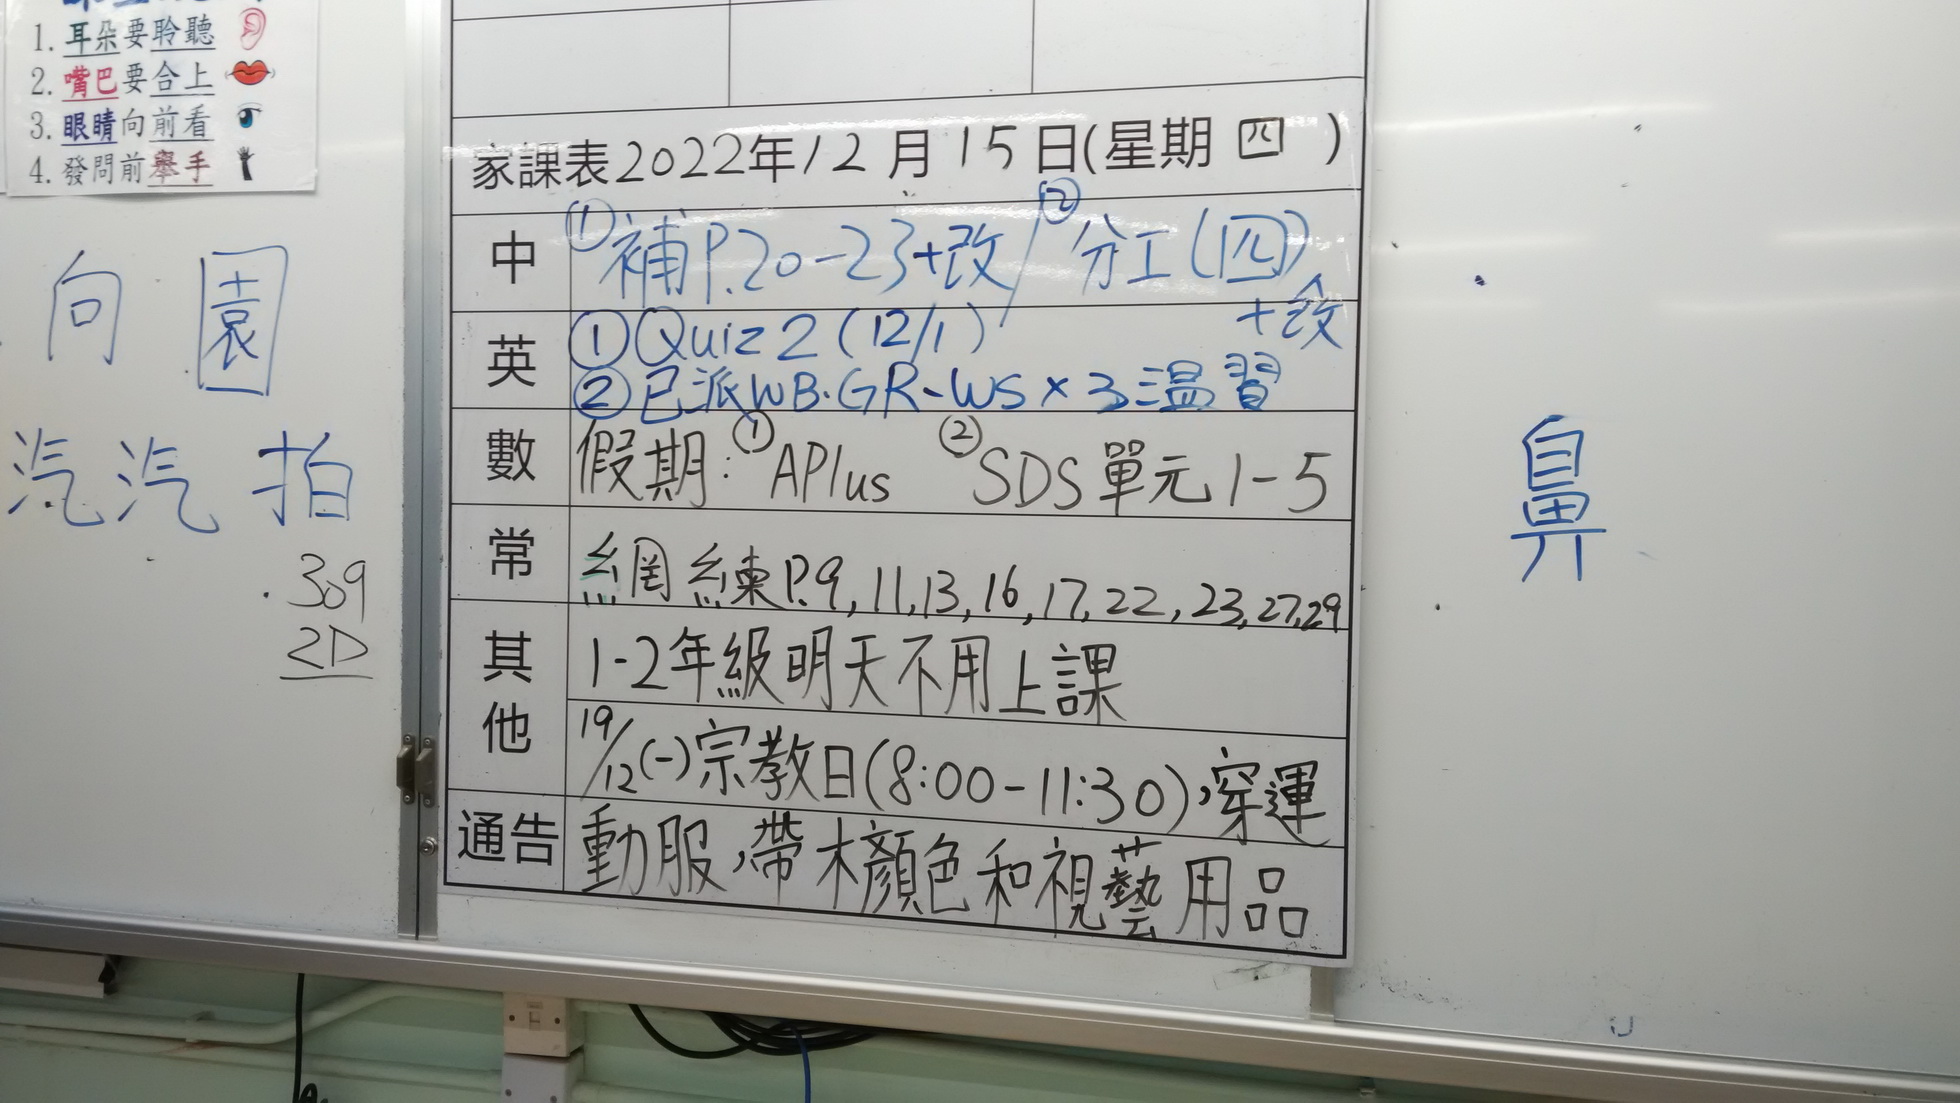 1. 耳朵要聆聽
2. 嘴巴要合上
3. 眼睛向前看
4. 發問前舉手
向 園
汽 汽 拍
309
2D
家課表2022年12月15日(星期四)
中 ①補P.20-23+改/②分工(四)
+改
英 ①Quiz 2 (12/1)
②已派WB.GR-WS×3溫習
數 假期:①APlus ②SDS單元1-5
常 網練P.9,11,13,16,17,22,23,27,29
其他 1-2年級明天不用上課
19/12(一)宗教日(8:00-11:30),穿運
通告 動服,帶木顏色和視藝用品
鼻